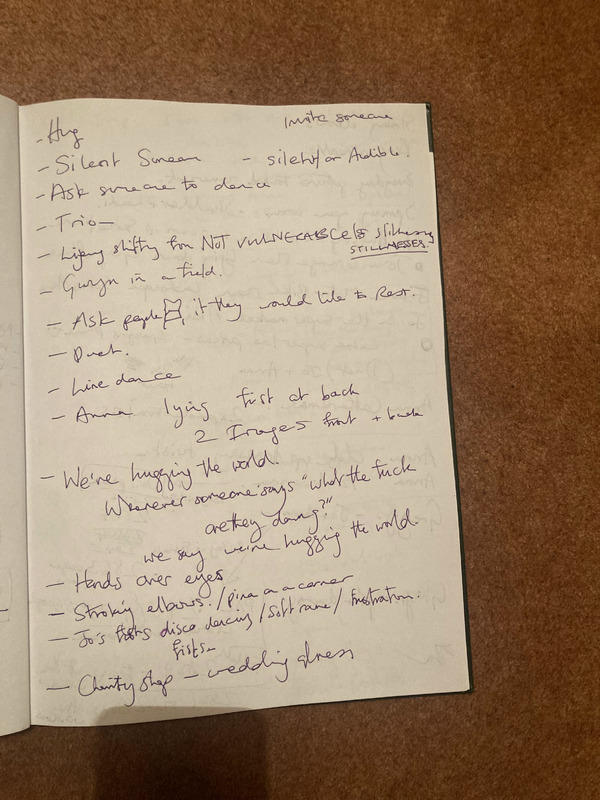 Invite someone
- Hug
- Silent Scream - silent/or Audible.
- Ask someone to dance
- Trio -
- Lying shifting from NOT VULNERABLE stillnesses
STILLNESSES
- Gwyn in a field.
- Ask people if they would like to Rest.
- Duet.
- Line dance
- Anna lying first at back
2 Images front + back
- We're hugging the world.
Whenever someone says "what the fuck
are they doing?"
we say we're hugging the world.
- Hands over eyes
- Stroking elbows. / in a corner
- Jo's disco dancing / Soft / frustration.
fists -
- Charity Shop - wedding dress